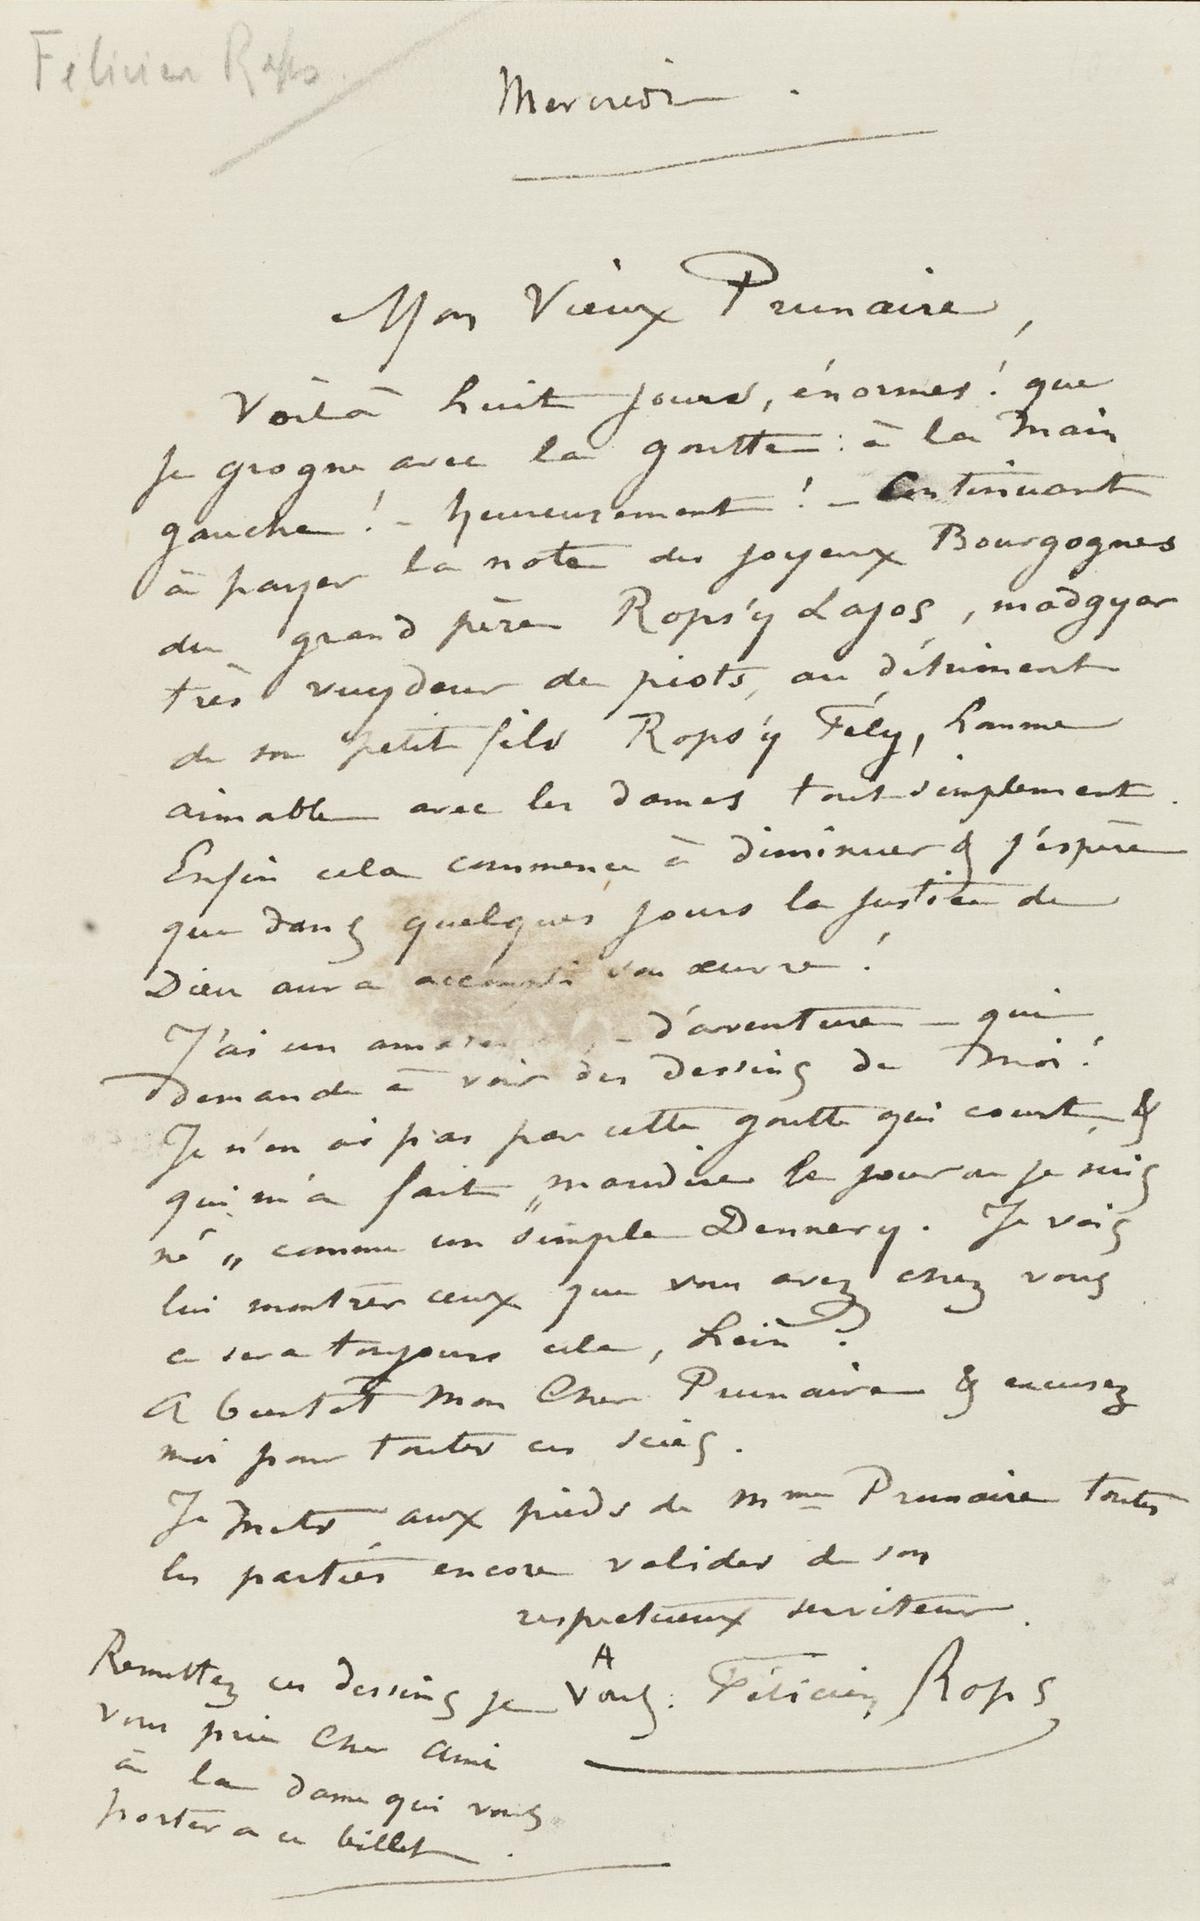 Félicien Rops.
Mercredi.
Mon Vieux Prunaire,
Voilà huit jours, énormes! que
je grogne avec la goutte: à la main
gauche! – heureusement! – Continuant
à payer la note des joyeux Bourgognes
du grand père Rops'y Lajos, madgyar
très vuydeur de piots, au détriment
de son petit fils Rops'y Fély, homme
aimable avec les dames tout simplement.
Enfin cela commence à diminuer & j'espère
que dans quelques jours la justice de
Dieu aura accompli son œuvre!
J'ai un – d'aventure – qui
demande à voir des dessins de moi!
Je n'en ai pas par cette goutte qui court, &
qui m'a fait „maudire le jour où je suis
né„ comme un simple Dennery. Je vais
lui montrer ceux que vous avez chez vous
ce sera toujours cela, hein?
A bientôt mon Cher Prunaire & excusez
moi pour toutes ces scies.
Je mets aux pieds de Mme Prunaire toutes
les parties encore valides de son
respectueux serviteur.
A Vous. Félicien Rops
Remettez ces dessins je
vous prie Cher Ami
à la dame qui vous
portera ce billet.